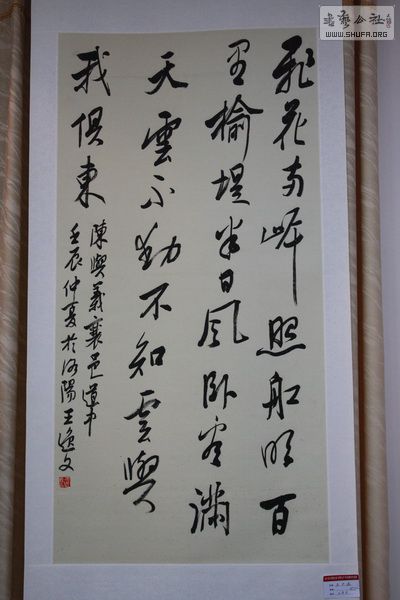 飛花两岸照船紅百
里榆堤半日風卧看滿
天雲不動不知雲與
我俱東
陳與義襄邑道中
壬辰仲夏於洛陽王逸文
書藝公社
WWW.SHUFA.ORG